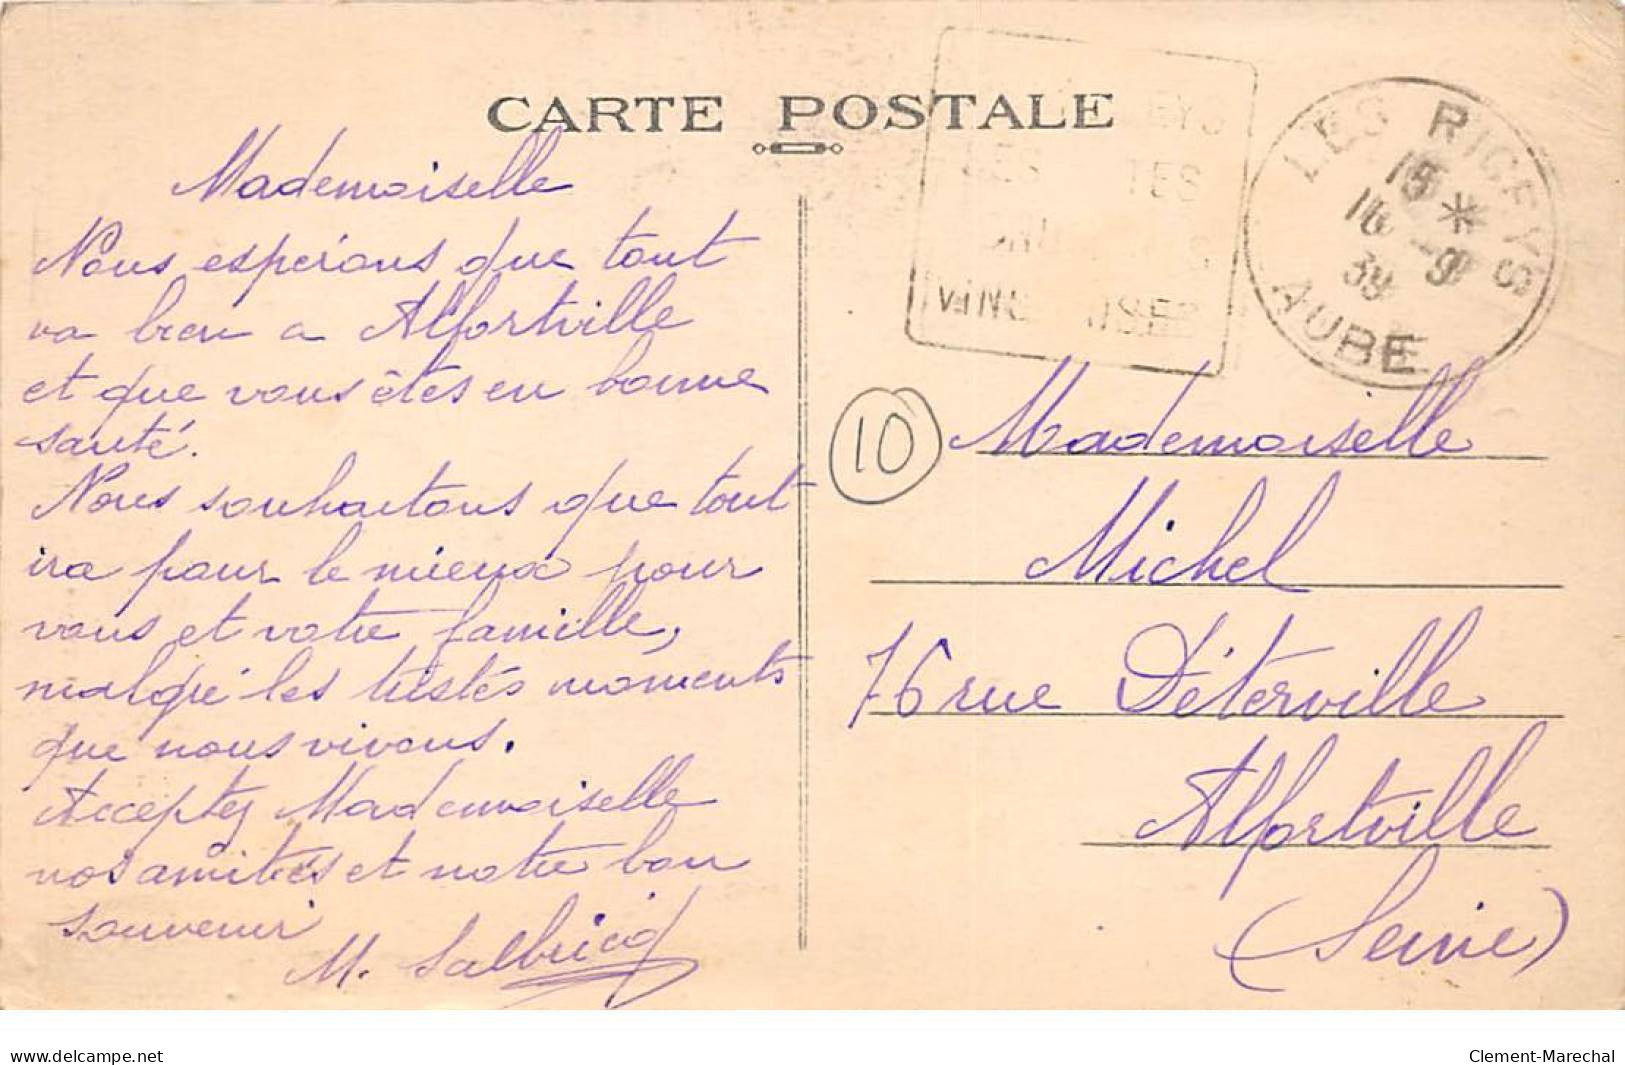 CARTE POSTALE
Mademoiselle
Nous espérons que tout
va bien a Alfortville
et que vous êtes en bonne
santé.
Nous souhaitons que tout
ira pour le mieux pour
vous et votre famille,
malgré les tristes moments
que nous vivons.
Acceptez Mademoiselle
nos amitiés et notre bon
souvenir
M.
LES RICEYS
15 *
16 -9
39
AUBE
10
Mademoiselle
Michel
76 rue Déterville
Alfortville
(Seine)
www.delcampe.net
Clement-Marechal